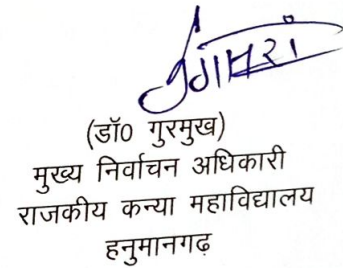 (डॉ0 गुरमुख)
मुख्य निर्वाचन अधिकारी
राजकीय कन्या महाविद्यालय
हनुमानगढ़